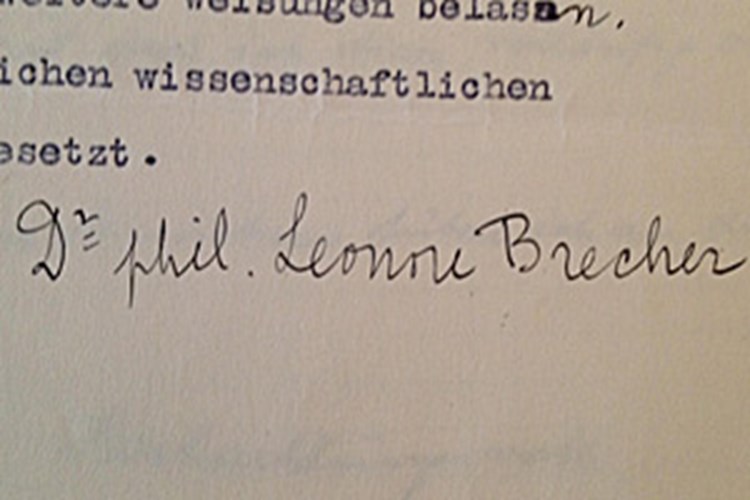 weitere Weisungen belassen.
ichen wissenschaftlichen
esetzt.
Dr phil. Leonore Brecher